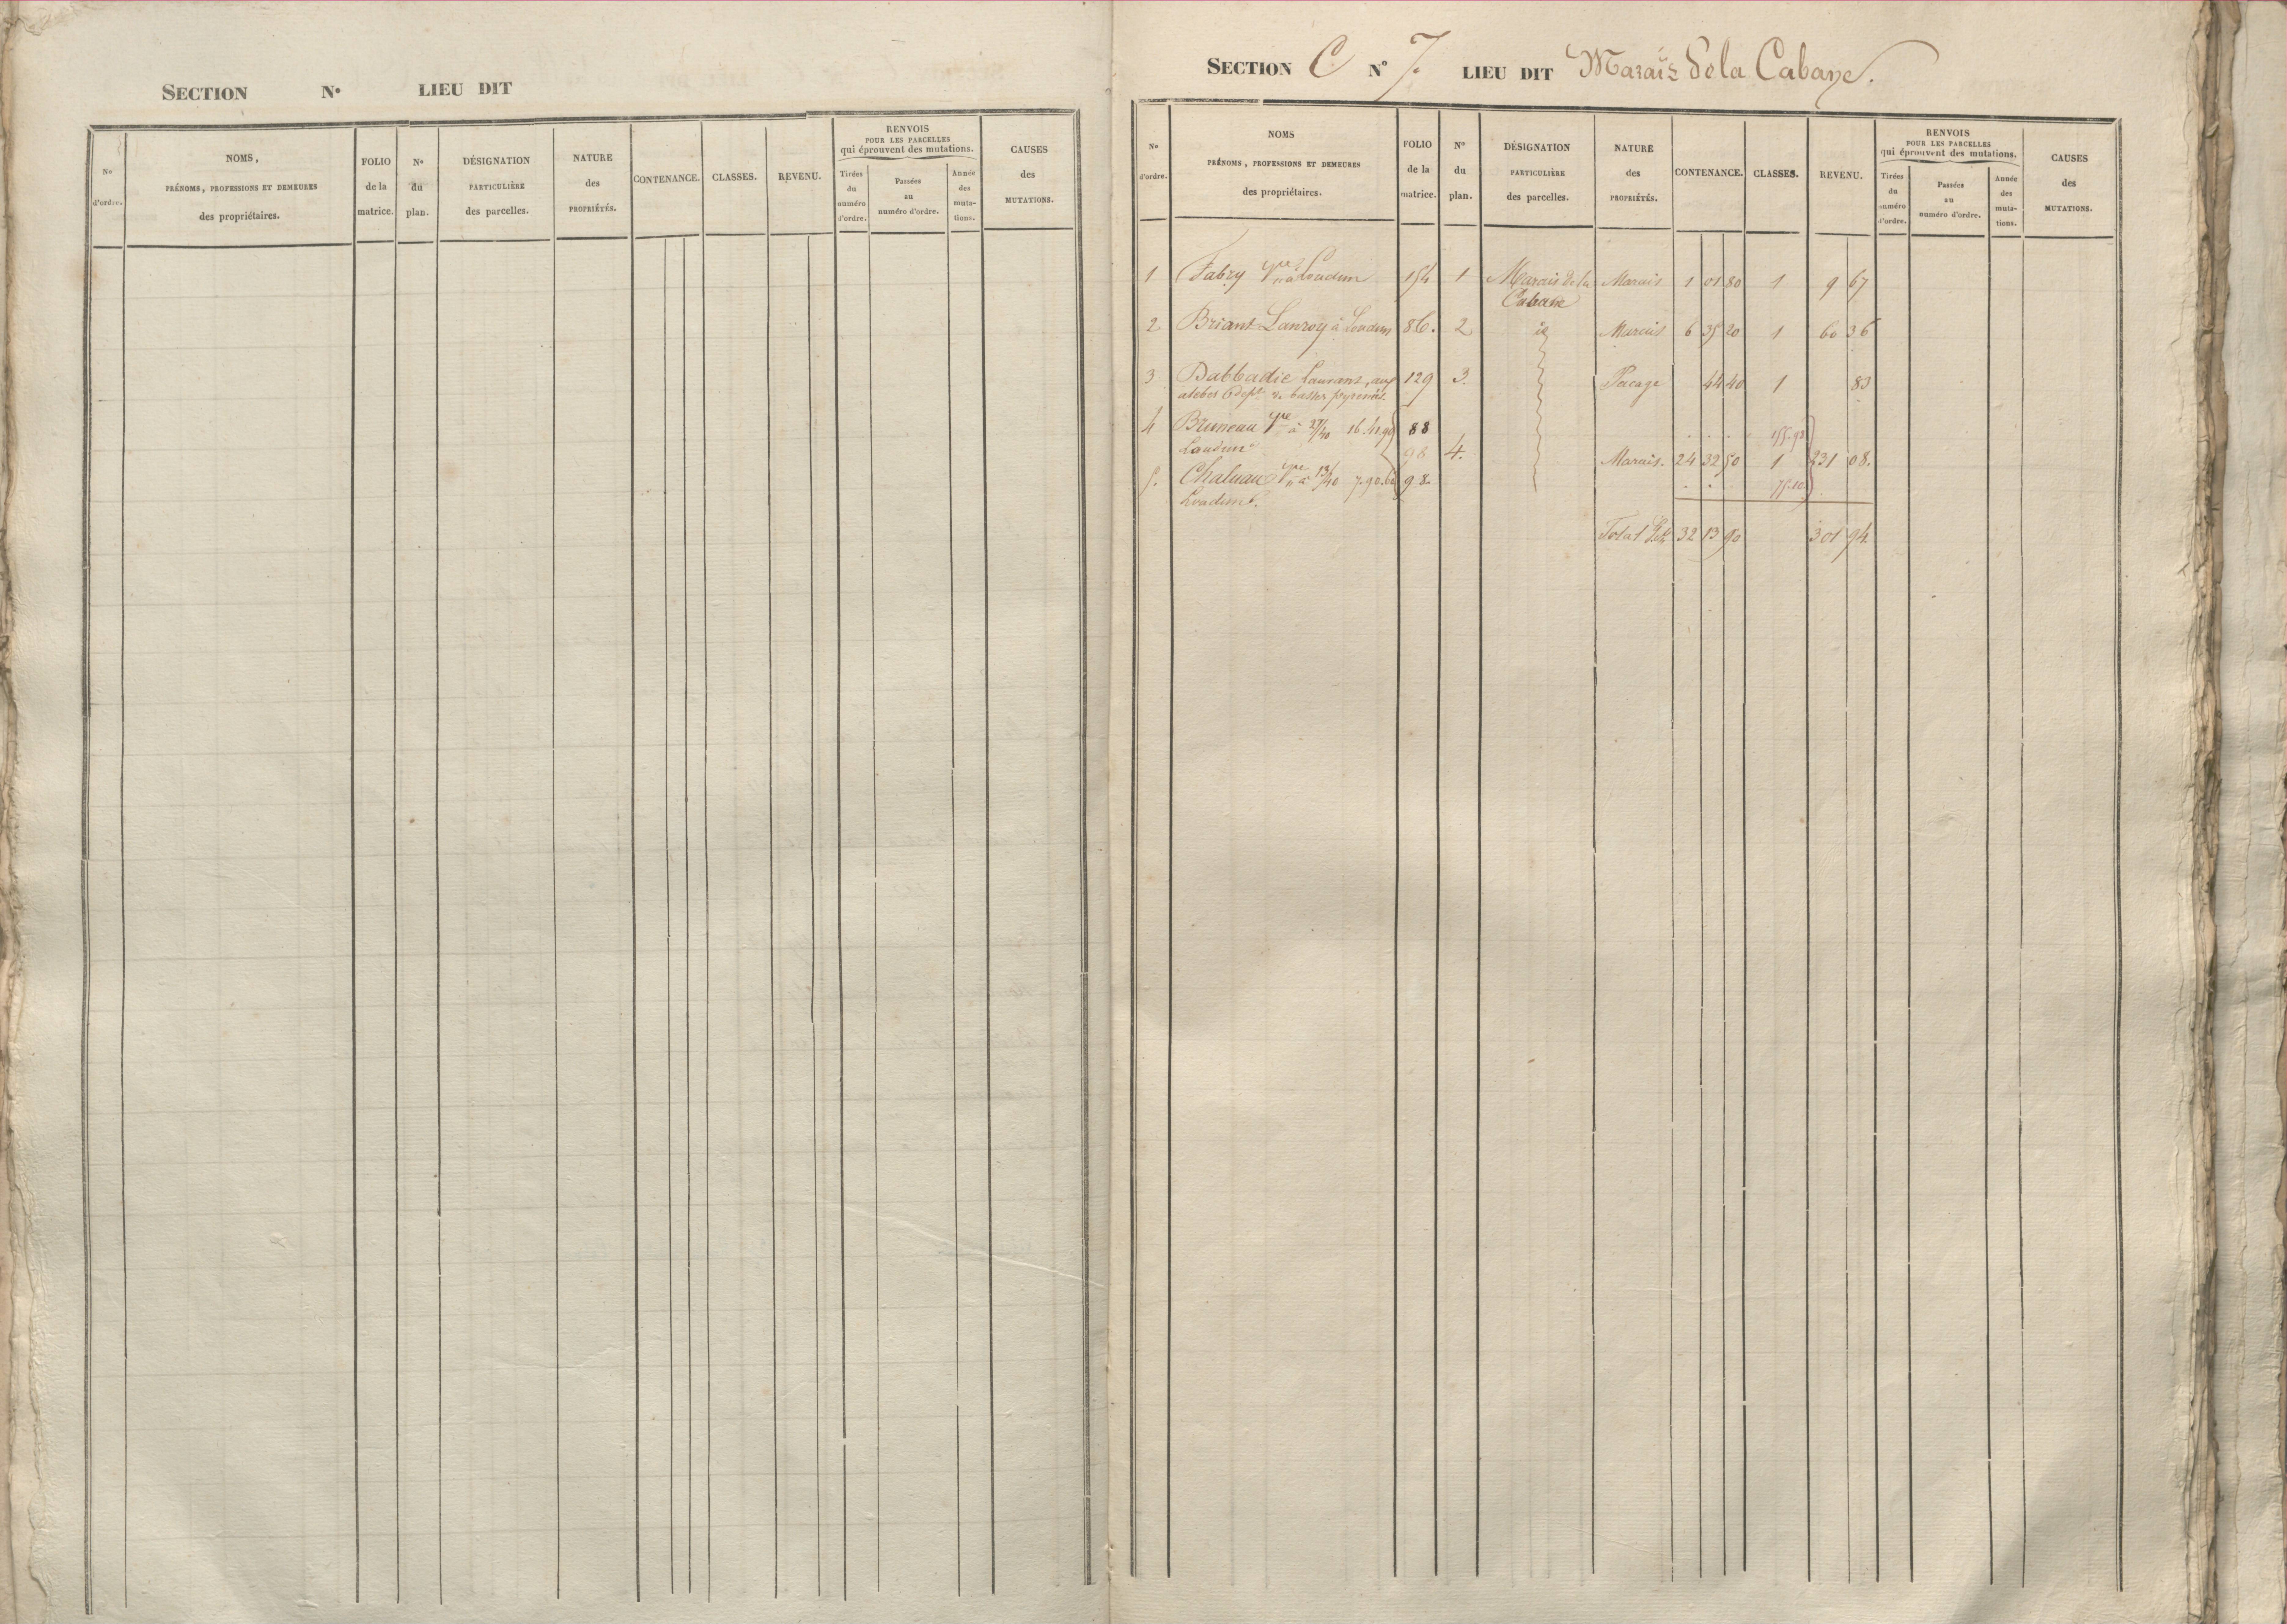 SECTION N° LIEU DIT
N° d'ordre.
NOMS,
PRÉNOMS, PROFESSIONS ET DEMEURES
des propriétaires.
FOLIO
de la
matrice.
N°
du
plan.
DÉSIGNATION
PARTICULIÈRE
des parcelles.
NATURE
des
PROPRIÉTÉS.
CONTENANCE.
CLASSES.
REVENU.
RENVOIS
POUR LES PARCELLES
qui éprouvent des mutations.
Tirées
du
numéro
d'ordre.
Passées
au
numéro d'ordre.
Année
des
muta-
tions.
CAUSES
des
MUTATIONS.
SECTION C N° 7. LIEU DIT Marais de la Cabane.
N°
d'ordre.
NOMS
PRÉNOMS, PROFESSIONS ET DEMEURES
des propriétaires.
FOLIO
de la
matrice.
N°
du
plan.
DÉSIGNATION
PARTICULIÈRE
des parcelles.
NATURE
des
PROPRIÉTÉS.
CONTENANCE.
CLASSES.
REVENU.
RENVOIS
POUR LES PARCELLES
qui éprouvent des mutations.
Tirées
du
numéro
d'ordre.
Passées
au
numéro d'ordre.
Année
des
muta-
tions.
CAUSES
des
MUTATIONS.
1 Fabry à Loudun 154 1 Marais de la Marais 1 01 80 1 9 67
Cabane
2 Briant Lanroy à Loudun 86. 2 id Marais 6 35 20 1 60 36
3 Dabbadie Laurans, 129 3. Pacage 44 40 1 83
dept. basses pyrenées.
4 Bruneau Vve à 27/40 16.41.90 88
155.98
Loudun 98 4. Marais. 24 32 50 1 231 08.
5. Chaluau Vve à 13/40 7.90.60 98.
75.10
Loudun.
Total 32 13 90 301 94.